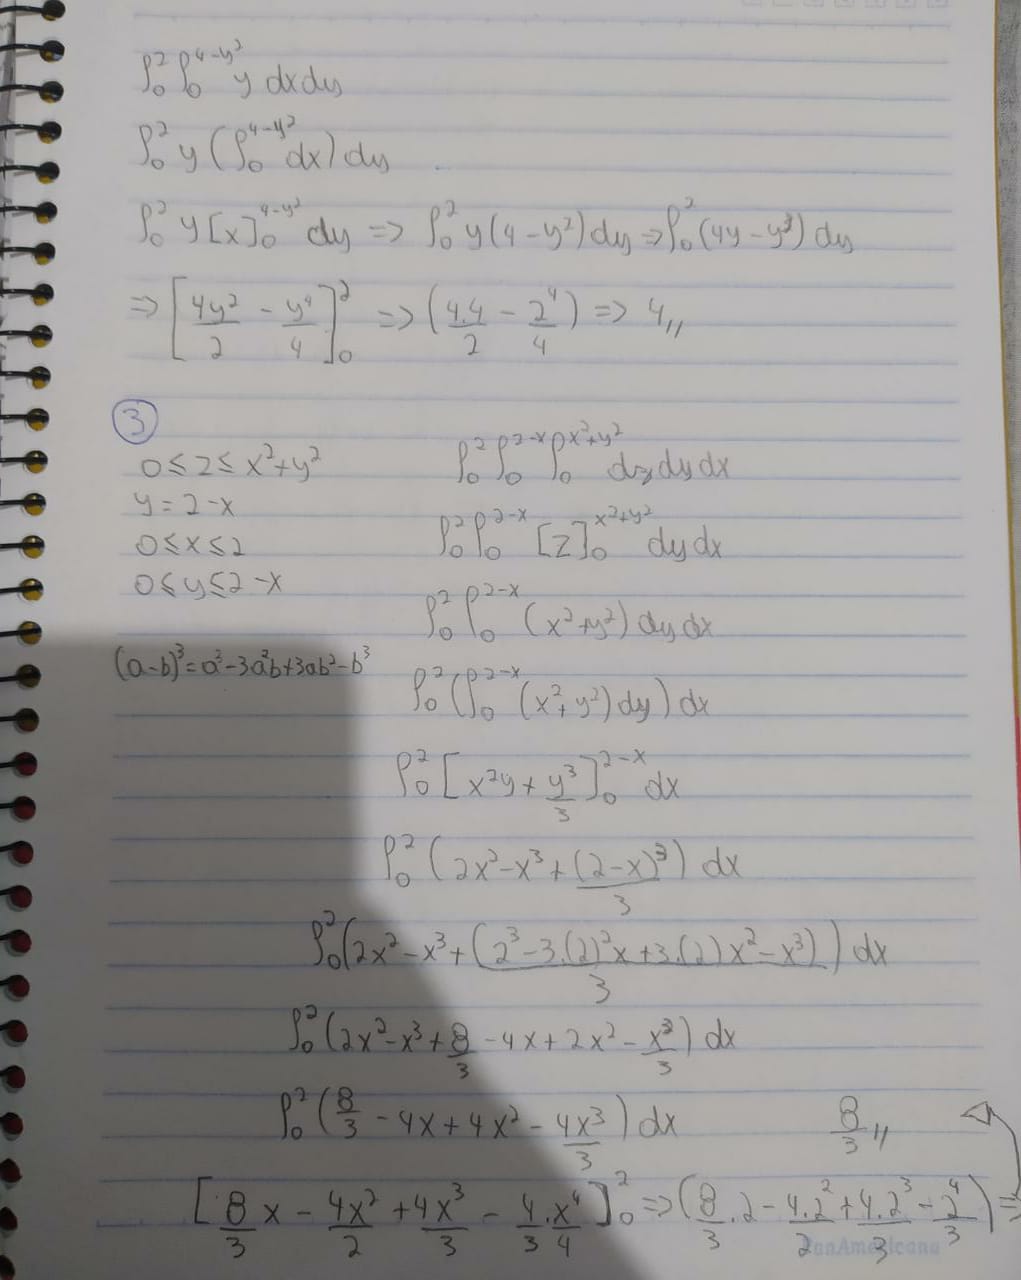 ∫₀² ∫₀^(4-y²) y dx dy
∫₀² y (∫₀^(4-y²) dx) dy
∫₀² y [x]₀^(4-y²) dy => ∫₀² y(4-y²) dy => ∫₀² (4y-y³) dy
=> [4y²/2 - y⁴/4]₀² => (4.4/2 - 2⁴/4) => 4,,
3
0 ≤ z ≤ x²+y²
∫₀² ∫₀^(2-x) ∫₀^(x²+y²) dz dy dx
y = 2-x
0 ≤ x ≤ 2
∫₀² ∫₀^(2-x) [z]₀^(x²+y²) dy dx
0 ≤ y ≤ 2-x
∫₀² ∫₀^(2-x) (x²+y²) dy dx
(a-b)³ = a³-3a²b+3ab²-b³
∫₀² (∫₀^(2-x) (x²+y²) dy) dx
∫₀² [x²y + y³/3]₀^(2-x) dx
∫₀² (2x²-x³+(2-x)³/3) dx
∫₀² (2x²-x³+(2³-3.(2)²x+3.(2)x²-x³)/3) dx
∫₀² (2x²-x³+8/3-4x+2x²-x³/3) dx
∫₀² (8/3-4x+4x²-4x³/3) dx
8/3,,
[8/3 x - 4x²/2 + 4x³/3 - 4/3 . x⁴/4]₀² => (8/3 . 2 - 4.2²/2 + 4.2³/3 - 2⁴/3) =>
PanAmericana